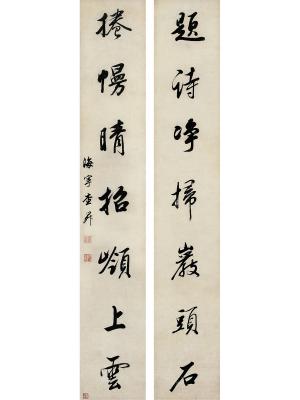 題詩净掃巖頭石
捲幔晴招嶺上雲
海寧查昇